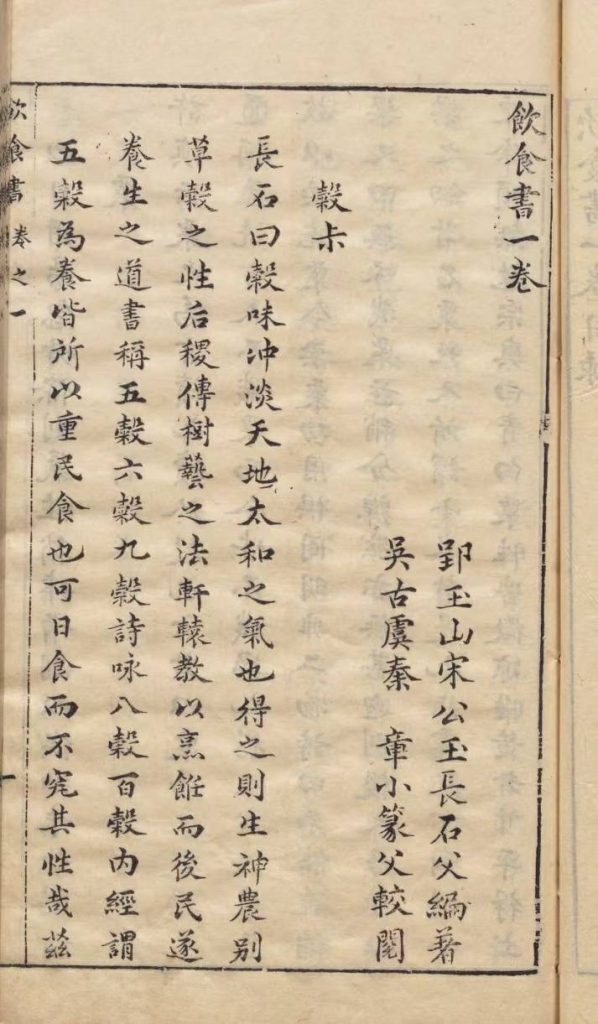 飲食書一卷
郢玉山宋公玉長石父編著
吳古虞秦 章小篆父較閱
穀尗
長石曰穀味冲淡天地太和之氣也得之則生神農别
草穀之性后稷傳樹藝之法軒轅教以烹飪而後民遂
養生之道書稱五穀六穀九穀詩咏八穀百穀内經謂
五穀為養皆所以重民食也可日食而不究其性哉茲
飲食書 卷之一 一